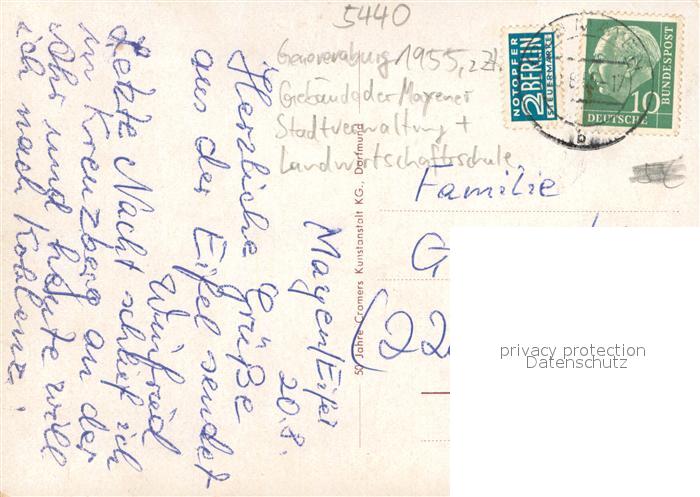 5440
Genovevaburg 1955, z.Zt.
Gebäude der Mayener
Stadtverwaltung +
Landwirtschaftsschule
NOTOPFER
2 BERLIN
STEUERMARKE
10
DEUTSCHE
BUNDESPOST
b
Mayen/Eifel
20.8.
Herzliche Grüße
aus der Eifel sendet
Winfried
Letzte Nacht schlief ich
in Kreuzberg an der
Ahr und heute will
ich nach Koblenz.
50 Jahre Cramers Kunstanstalt KG., Dortmund
Familie
G
(22
privacy protection
Datenschutz